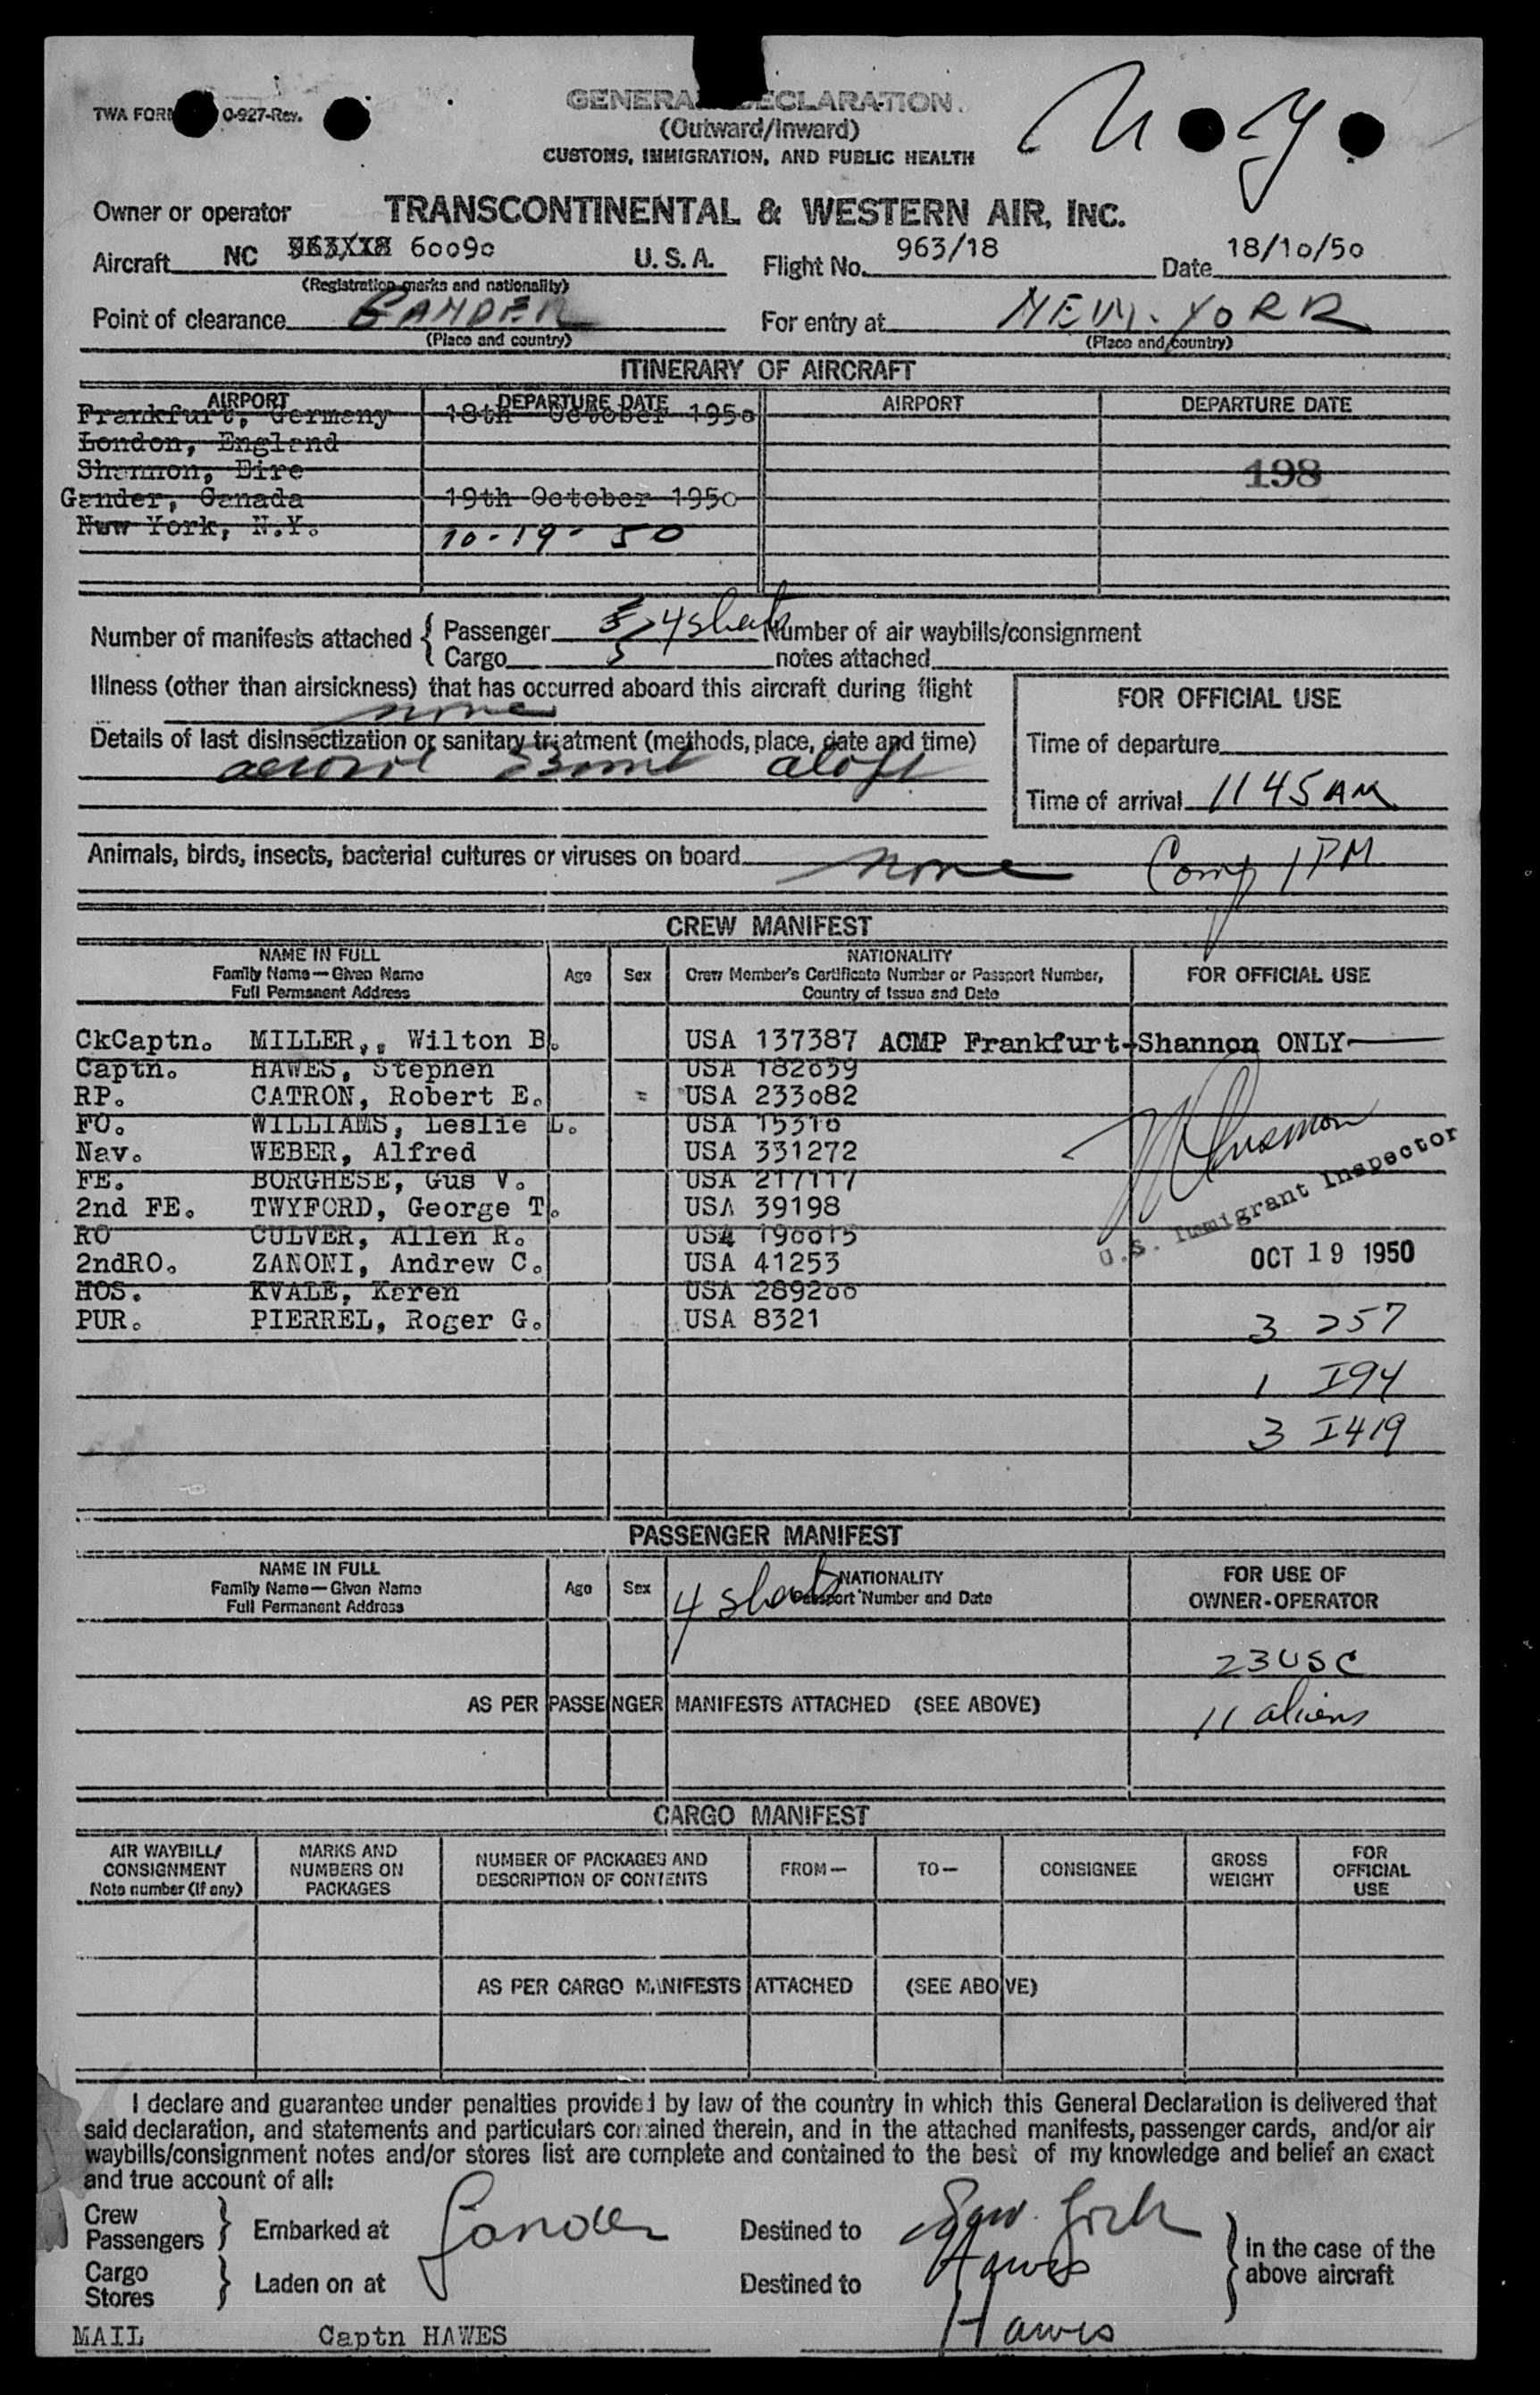 TWA FORM O-927-Rev.
GENERAL DECLARATION.
(Outward/Inward)
CUSTOMS, IMMIGRATION, AND PUBLIC HEALTH
N.Y.
Owner or operator TRANSCONTINENTAL & WESTERN AIR, INC.
Aircraft NC 963/18 60090 U.S.A. Flight No. 963/18 Date 18/10/50
(Registration marks and nationality)
Point of clearance GANDER For entry at NEW. YORK
(Place and country) (Place and country)
ITINERARY OF AIRCRAFT
AIRPORT DEPARTURE DATE AIRPORT DEPARTURE DATE
Frankfurt, Germany 18th October 1950
London, England
Shannon, Eire 198
Gander, Canada 19th October 1950
New York, N.Y. 10-19-50
Number of manifests attached { Passenger 4 sheets Number of air waybills/consignment
Cargo notes attached
Illness (other than airsickness) that has occurred aboard this aircraft during flight
none
FOR OFFICIAL USE
Details of last disinsectization or sanitary treatment (methods, place, date and time)
aerosol bomb aloft
Time of departure
Time of arrival 1145 AM
Animals, birds, insects, bacterial cultures or viruses on board none Comp 1 PM
CREW MANIFEST
NAME IN FULL
Family Name—Given Name
Full Permanent Address
Age Sex
NATIONALITY
Crew Member's Certificate Number or Passport Number,
Country of Issue and Date
FOR OFFICIAL USE
CkCaptn. MILLER,, Wilton B. USA 137387 ACMP Frankfurt-Shannon ONLY
Captn. HAWES, Stephen USA 182639
RP. CATRON, Robert E. = USA 233082
FO. WILLIAMS, Leslie L. USA 15310
Nav. WEBER, Alfred USA 331272
FE. BORGHESE, Gus V. USA 217117
2nd FE. TWYFORD, George T. USA 39198
U.S. Immigrant Inspector
RO CULVER, Allen R. USA 190015
2ndRO. ZANONI, Andrew C. USA 41253 OCT 19 1950
HOS. KVALE, Karen USA 289200
PUR. PIERREL, Roger G. USA 8321 3 257
1 I94
3 I419
PASSENGER MANIFEST
NAME IN FULL
Family Name—Given Name
Full Permanent Address
Age Sex
4 sheets
NATIONALITY
Passport Number and Date
FOR USE OF
OWNER-OPERATOR
23 USC
AS PER PASSENGER MANIFESTS ATTACHED (SEE ABOVE) 11 aliens
CARGO MANIFEST
AIR WAYBILL/
CONSIGNMENT
Note number (if any)
MARKS AND
NUMBERS ON
PACKAGES
NUMBER OF PACKAGES AND
DESCRIPTION OF CONTENTS
FROM—
TO—
CONSIGNEE
GROSS
WEIGHT
FOR
OFFICIAL
USE
AS PER CARGO MANIFESTS ATTACHED (SEE ABOVE)
I declare and guarantee under penalties provided by law of the country in which this General Declaration is delivered that
said declaration, and statements and particulars contained therein, and in the attached manifests, passenger cards, and/or air
waybills/consignment notes and/or stores list are complete and contained to the best of my knowledge and belief an exact
and true account of all:
Crew
Passengers } Embarked at Gander Destined to New York
in the case of the
above aircraft
Cargo
Stores } Laden on at Destined to Hawes
MAIL Captn HAWES Hawes